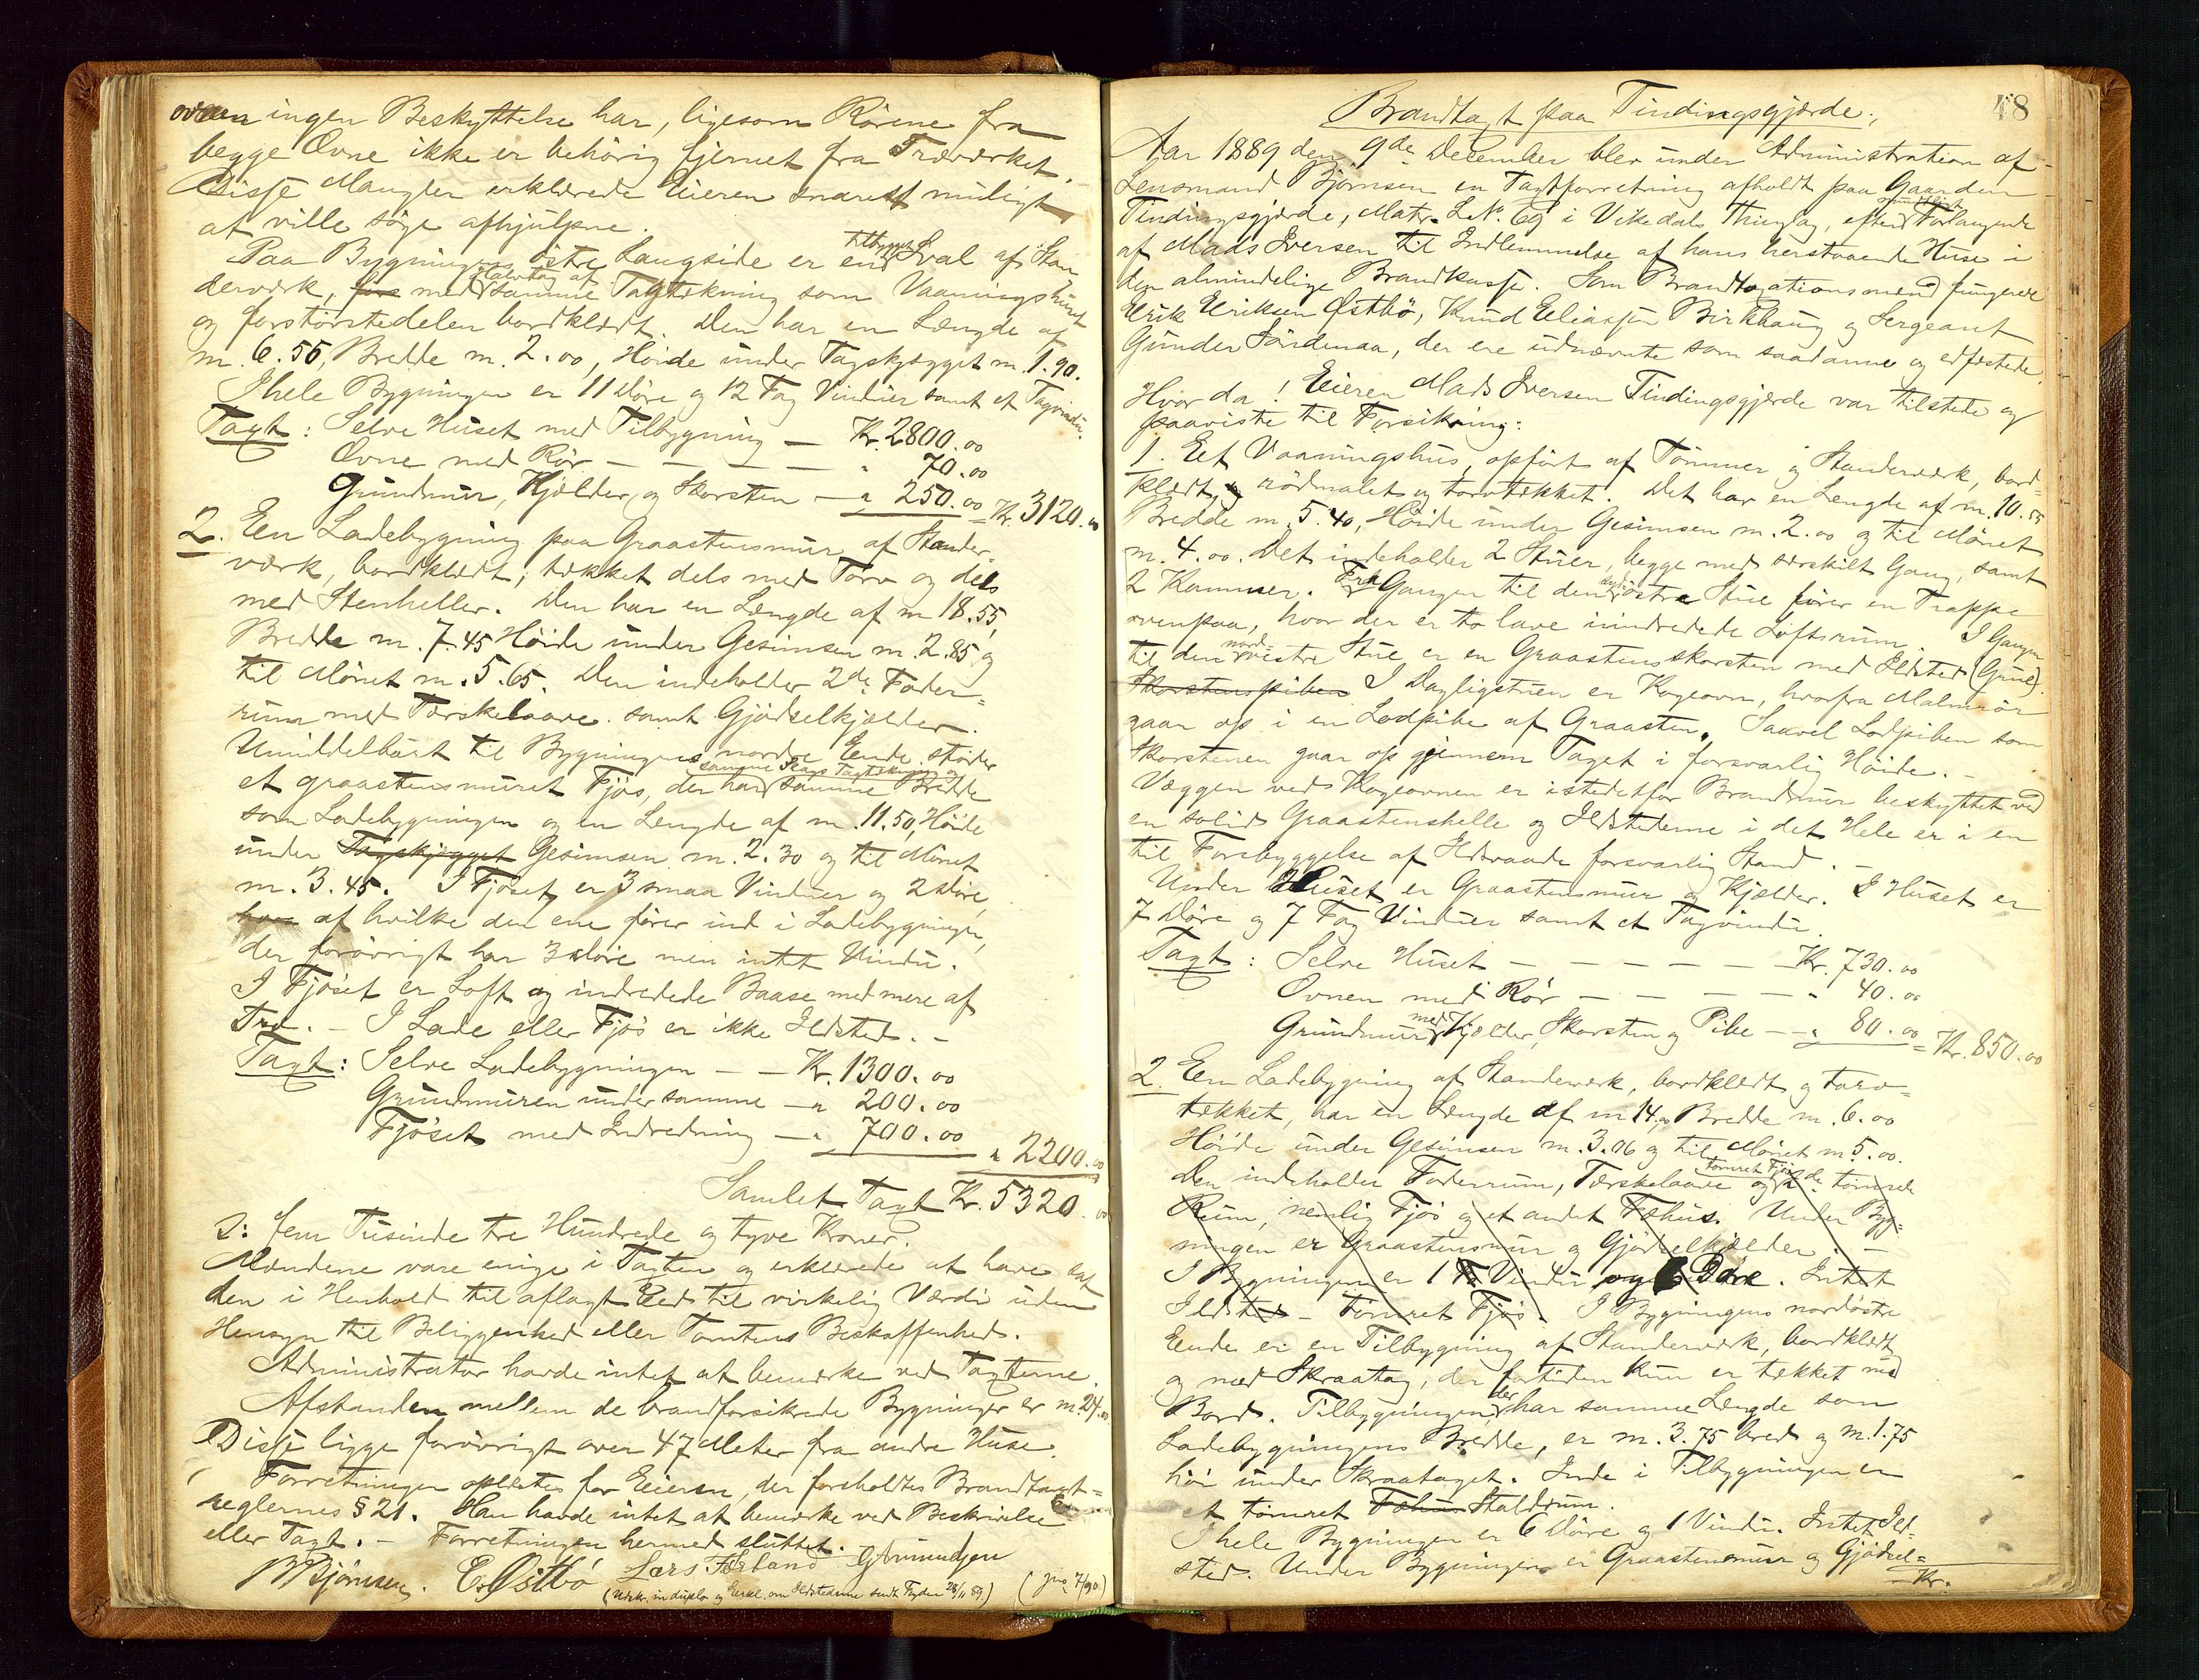 ovnen ingen Beskyttelse har, ligesom Rörene fra
begge Ovne ikke er behörig fjernet fra Træværket.
Disse Mangler erklærede Eieren snarest muligt
at ville söge afhjulpne.
Paa Bygningens östre Langside er en tilbygget Sval af Stan
derværk, med Halvtag af samme Tagtækning som Vaaningshuset
og forstörstedelen bordklædt. Den har en Længde af
m. 6.55, Bredde m. 2.00, Höide under Tagskjægget m. 1.90.
I hele Bygningen er 11 Döre og 12 Fag Vinduer samt et Tagvindu.
Taxt: Selve Huset med Tilbygning — Kr. 2800.00
Ovne med Rör — — — — — " 70.00
Grundmur, Kjælder og Skorsten — " 250.00 = Kr. 3120.00
2. Een Ladebygning paa Graastensmur af Stander-
værk, bordklædt; tækket dels med Torv og dels
med Stenheller. Den har en Længde af m 18.55,
Bredde m. 7.45 Höide under Gesimsen m. 2.85 og
til Mönet m. 5.65. Den indeholder 2de Foder=
rum med Tærskelaave samt Gjödselkjælder.
Umiddelbart til Bygningens nordre Ende stöder
et graastensmuret Fjös, der har samme Slags Tagtækning og samme Bredde
som Ladebygningen og en Længde af m. 11.50, Höide
under Tagskjægget Gesimsen m. 2.30 og til Mönet
m. 3.45. I Fjöset er 3 smaa Vinduer og 2 Döre,
hvor af hvilke den ene förer ind i Ladebygningen,
der forövrigt har 3 Döre men intet Vindu.
I Fjöset er Loft og indredede Baase med mere af
Træ. – I Lade eller Fjös er ikke Ildsted. –
Taxt: Selve Ladebygningen — — Kr. 1300.00
Grundmuren under samme — " 200.00
Fjöset med Indredning — " 700.00
" 2200.00
Samlet Taxt Kr. 5320.00
ɔ: fem Tusinde tre Hundrede og tyve Kroner.
Mændene vare enige i Taxten og erklærede at have sat
den i Henhold til aflagt Eed til virkelig Værdi uden
Hensyn til Beliggenhed eller Tomtens Beskaffenhed.
Administrator havde intet at bemærke ved Taxterne.
Afstanden mellem de brandforsikrede Bygninger er m. 24.00
Disse ligge forövrigt over 47 Meter fra andre Huse.
Forretningen oplæstes for Eieren, der foreholdtes Brandtaxt=
reglernes § 21. Han havde intet at bemærke ved Beskrivelse
eller Taxt. – Forretningen hermed sluttet.
B Björnsen. E. Östbö Lars Förland G Amundsen
(Udskr. in duplo og Erkl. om Ildstederne sendt Fogden 28/11 89.) ( 7/90.)
48
Brandtaxt paa Tindingsgjærde.
Aar 1889 den 9de December blev under Administration af
Lensmand Björnsen en Taxtforretning afholdt paa Gaarden
Tindingsgjærde, Matr. L.No. 69 i Vikedals Thinglag, efter mundtligt Forlangende
af Mads Iversen til Indlemmelse af hans herstaaende Huse i
den almindelige Brandkasse. Som Brandtaxationsmænd fungerede
Erik Eriksen Östbö, Knud Eliassen Birkhaug og Sergeant
Gunder Sördenaa, der ere udnævnte som saadanne og edfæstede.
Hvor da! Eieren Mads Iversen Tindingsgjærde var tilstede og
paaviste til Forsikring:
1. Eet Vaaningshus, opfört af Tömmer og Standerværk, bord=
klædt, rödmalet og torvtækket. Det har en Længde af m. 10.55
Bredde m. 5.40, Höide under Gesimsen m. 2.00 og til Mönet
m. 4.00. Det indeholder 2 Stuer, begge med særskilt Gang, samt
2 Kammer. Fra Gangen til den sydöstre Stue förer en Trappe
ovenpaa, hvor der er to lave inindredede Loftsrum. I Gangen
til den nordvestre Stue er en Graastensskorsten med Ildsted (Grue).
Skorstenspiben I Dagligstuen er Kogeovn, hvorfra Malmrör
gaar op i en Lodpibe af Graasten. Saavel Lodpiben som
Skorstenen gaar op gjennem Taget i forsvarlig Höide. –
Væggen ved Kogeovnen er istedetfor Brandmur beskyttet ved
en solid Graastenshelle og Ildstederne i det Hele er i en
til Forebyggelse af Ildsvaade forsvarlig Stand. –
Under Huset er Graastensmur og Kjælder. I Huset er
7 Döre og 7 Fag Vinduer samt et Tagvindu.
Taxt: Selve Huset — — — — — — Kr. 730.00
Ovnen med Rör — — — — — " 40.00
Grundmur med Kjælder, Skorsten og Pibe — — " 80.00 = Kr. 850.00
2. Een Ladebygning af Standerværk, bordklædt og torv=
tækket, har en Længde af m 14.00 Bredde m. 6.00
Höide under Gesimsen m. 3.06 og til Mönet m 5.00.
Den indeholder Foderrum, Tærskelaave og tömret Fjös 2de tömrede
Rum, nemlig Fjös og et andet Fæhus. Under Byg=
ningen er Graastensmur og Gjödselkjælder. –
I Bygningen er 1 Vindu og Döre. Intet
Ildsted – Tömret Fjös. I Bygningens nordöstre
Ende er en Tilbygning af Standerværk, bordklædt
og med Skraatag, der fortiden kun er tækket med
Bord. Tilbygningen, der har samme Længde som
Ladebygningens Bredde, er m. 3.75 bred og m. 1.75
höi under Skraataget. Inde i Tilbygningen er
et tömret Fæhus Staldrum.
I hele Bygningen er 6 Döre og 1 Vindu. Intet Ild-
sted. Under Bygningen er Graastensmur og Gjödsel=
Kr.